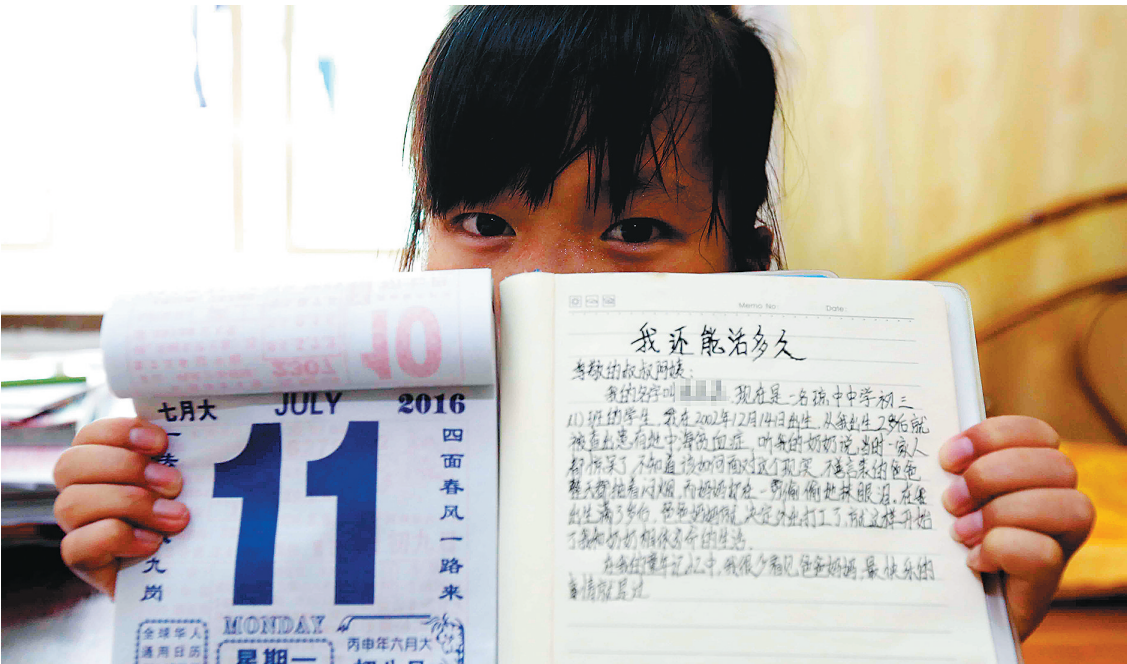 10
2307
七月大 JULY 2016
11
四面春风一路来
九岗
MONDAY
全球华人
通用日历
星期一
丙申年六月大
Memo No:
Date:
我还能活多久
尊敬的叔叔阿姨:
我的名字叫 现在是一名琼中中学初三
(1)班的学生,我在2002年12月14日出生,从我出生2岁后就
被查出患有地中海贫血症,听我的奶奶说,当时一家人
都惊呆了,不知道该如何面对这个现实,不善言来的爸爸
整天都抽着闷烟,而妈妈在一旁偷偷地抹眼泪,在我
出生满3岁后,爸爸妈妈决定外出打工了,就这样开始
了我和奶奶相依为命的生活.
在我的童年记忆中,我很少看见爸爸妈妈,最快乐的
事情就是过